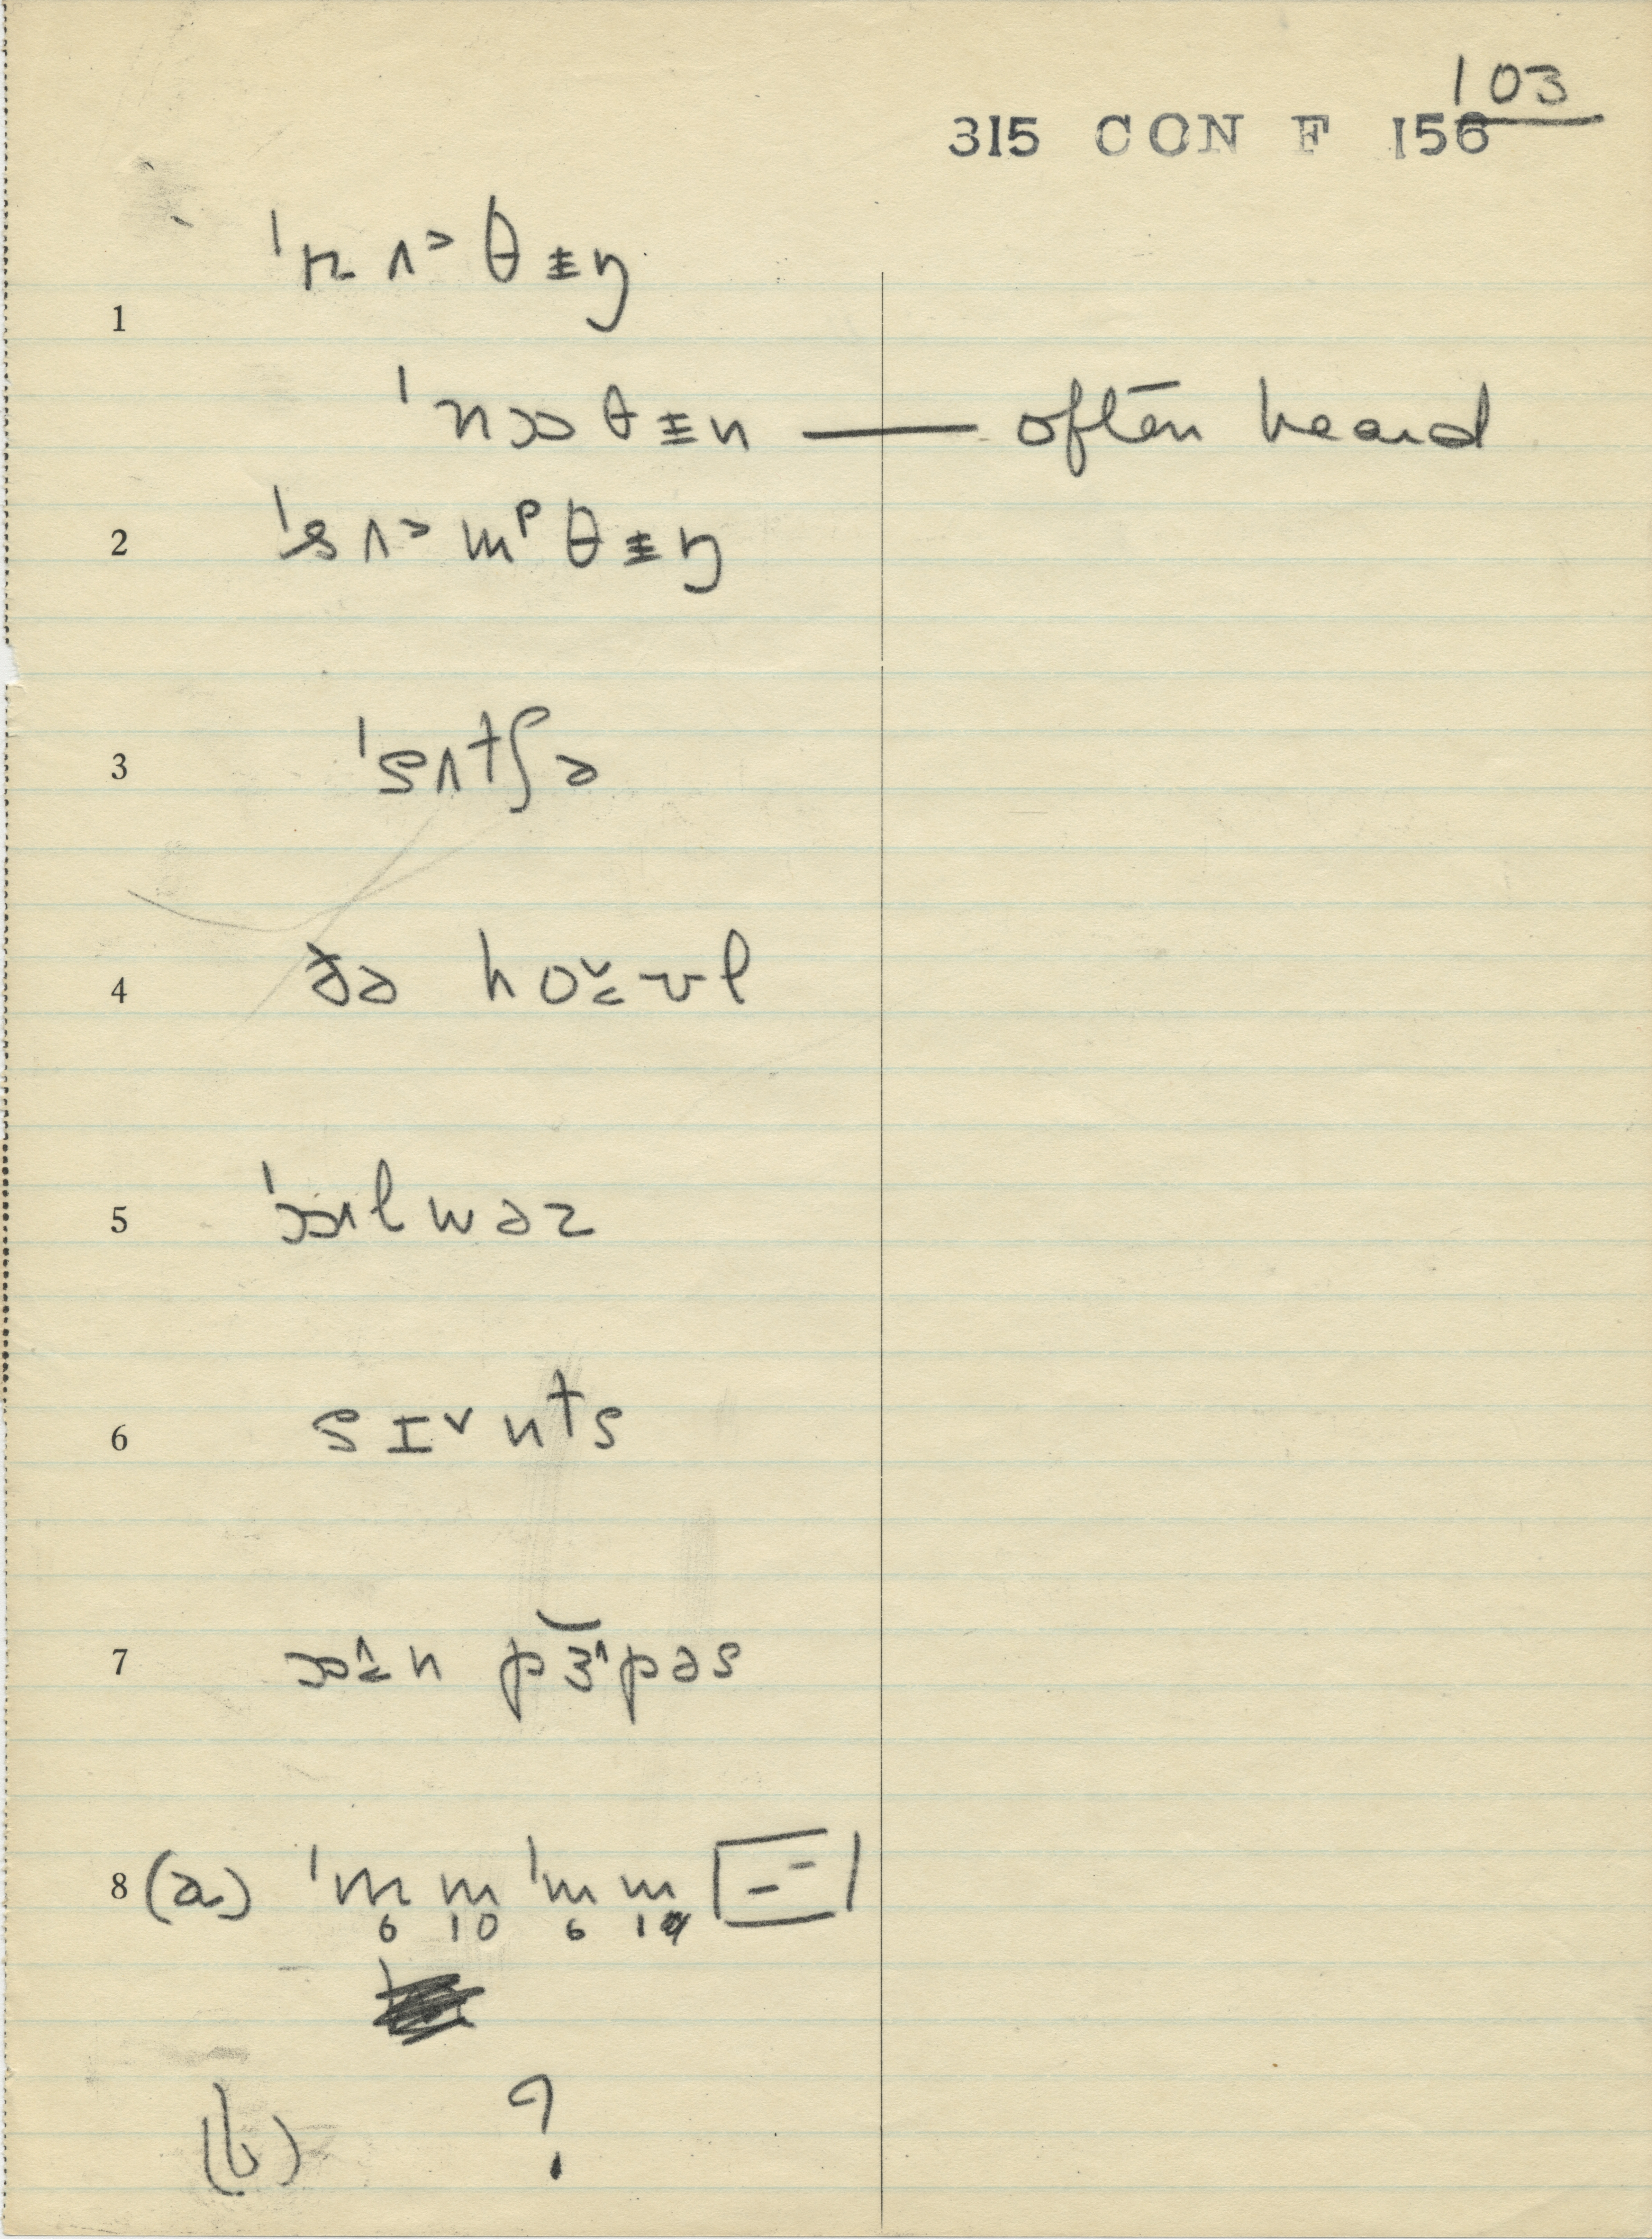 103
315 CON F 156
1 ˈnʌ˃θɨ̵ŋ
ˈnɔθɨn — often heard
2 ˈsʌ˃mᵖθɨ̵ŋ
3 ˈsʌtʃə
4 ðə ho˅vl
5 ˈɔlwəz
6 sɪ˅nᵗs
7 ɔn pɜ˄pəs
8 (a) ˈm m ˈm m
6 10 6 10
(b) ?